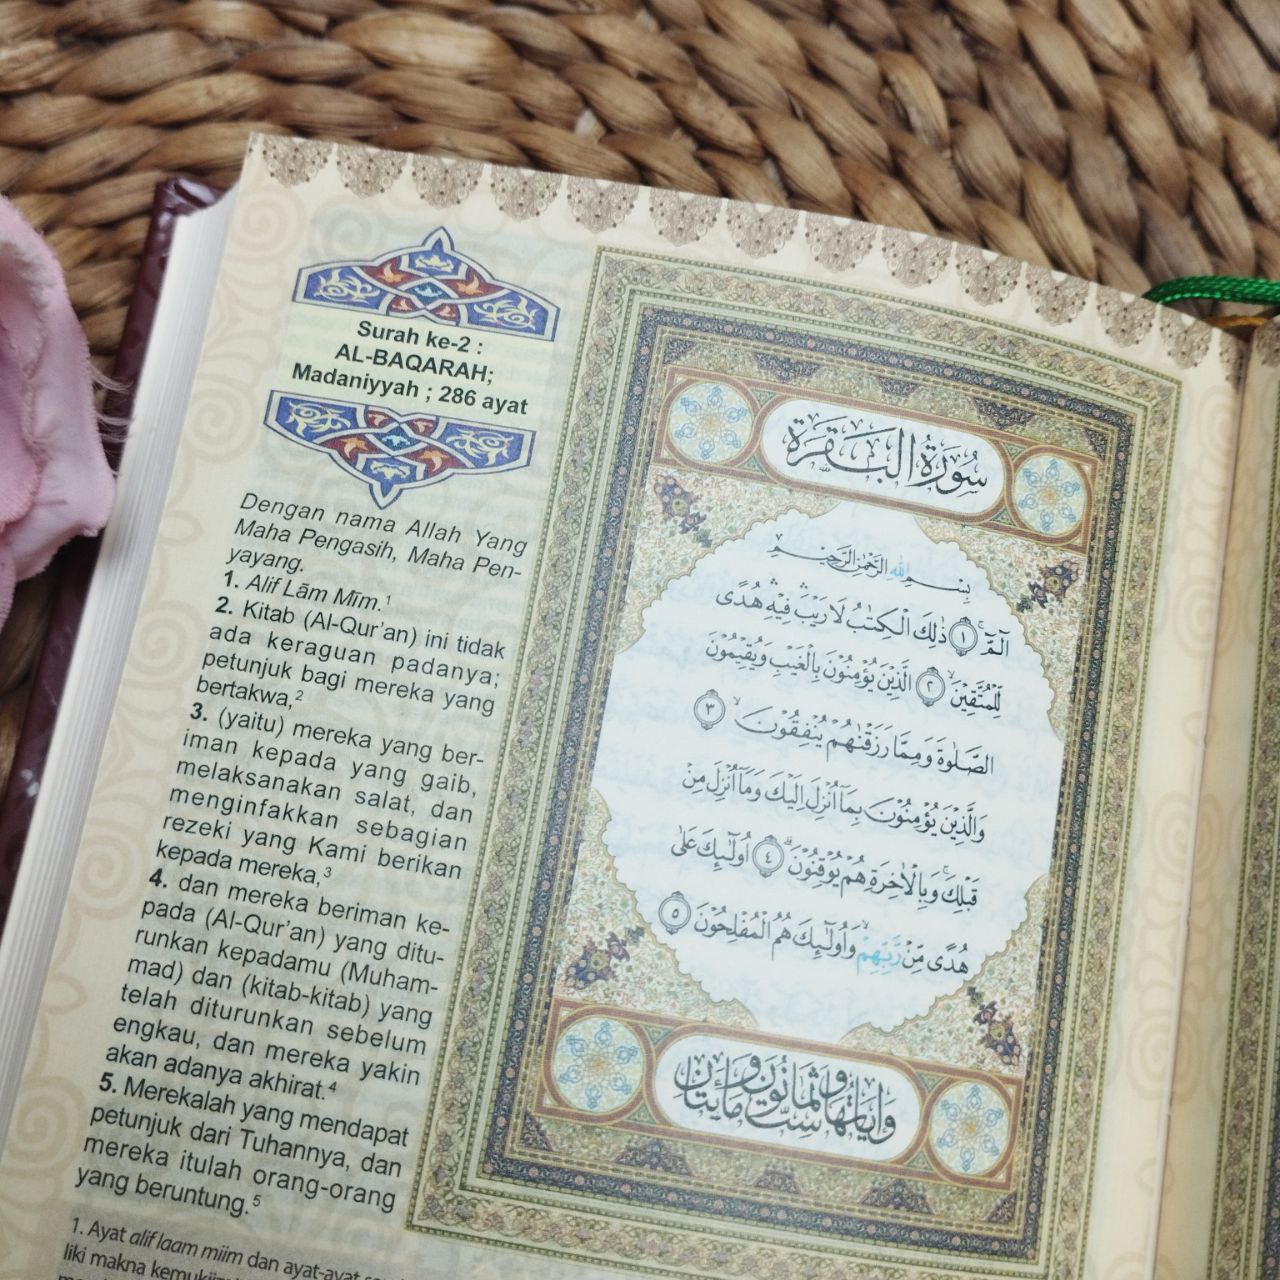 Surah ke-2 :
AL-BAQARAH;
Madaniyyah ; 286 ayat
Dengan nama Allah Yang
Maha Pengasih, Maha Pen-
yayang.
1. Alif Lām Mīm.¹
2. Kitab (Al-Qur’an) ini tidak
ada keraguan padanya;
petunjuk bagi mereka yang
bertakwa,²
3. (yaitu) mereka yang ber-
iman kepada yang gaib,
melaksanakan salat, dan
menginfakkan sebagian
rezeki yang Kami berikan
kepada mereka,³
4. dan mereka beriman ke-
pada (Al-Qur’an) yang ditu-
runkan kepadamu (Muham-
mad) dan (kitab-kitab) yang
telah diturunkan sebelum
engkau, dan mereka yakin
akan adanya akhirat.⁴
5. Merekalah yang mendapat
petunjuk dari Tuhannya, dan
mereka itulah orang-orang
yang beruntung.⁵
1. Ayat alif laam miim dan ayat-ayat
liki makna
سُورَةُ الْبَقَرَةِ
بِسْمِ اللهِ الرَّحْمٰنِ الرَّحِيْمِ
الۤمّۤ ۚ ﴿١﴾ ذٰلِكَ الْكِتٰبُ لَا رَيْبَ ۛ فِيْهِ ۛ هُدًى
لِّلْمُتَّقِيْنَ ۙ ﴿٢﴾ الَّذِيْنَ يُؤْمِنُوْنَ بِالْغَيْبِ وَيُقِيْمُوْنَ
الصَّلٰوةَ وَمِمَّا رَزَقْنٰهُمْ يُنْفِقُوْنَ ۙ ﴿٣﴾
وَالَّذِيْنَ يُؤْمِنُوْنَ بِمَآ اُنْزِلَ اِلَيْكَ وَمَآ اُنْزِلَ مِنْ
قَبْلِكَ ۚ وَبِالْاٰخِرَةِ هُمْ يُوْقِنُوْنَ ۗ ﴿٤﴾ اُولٰۤىِٕكَ عَلٰى
هُدًى مِّنْ رَّبِّهِمْ ۙ وَاُولٰۤىِٕكَ هُمُ الْمُفْلِحُوْنَ ﴿٥﴾
وَاٰيَاتُهَا سِتٌّ وَثَمَانُوْنَ وَمِائَتَانِ